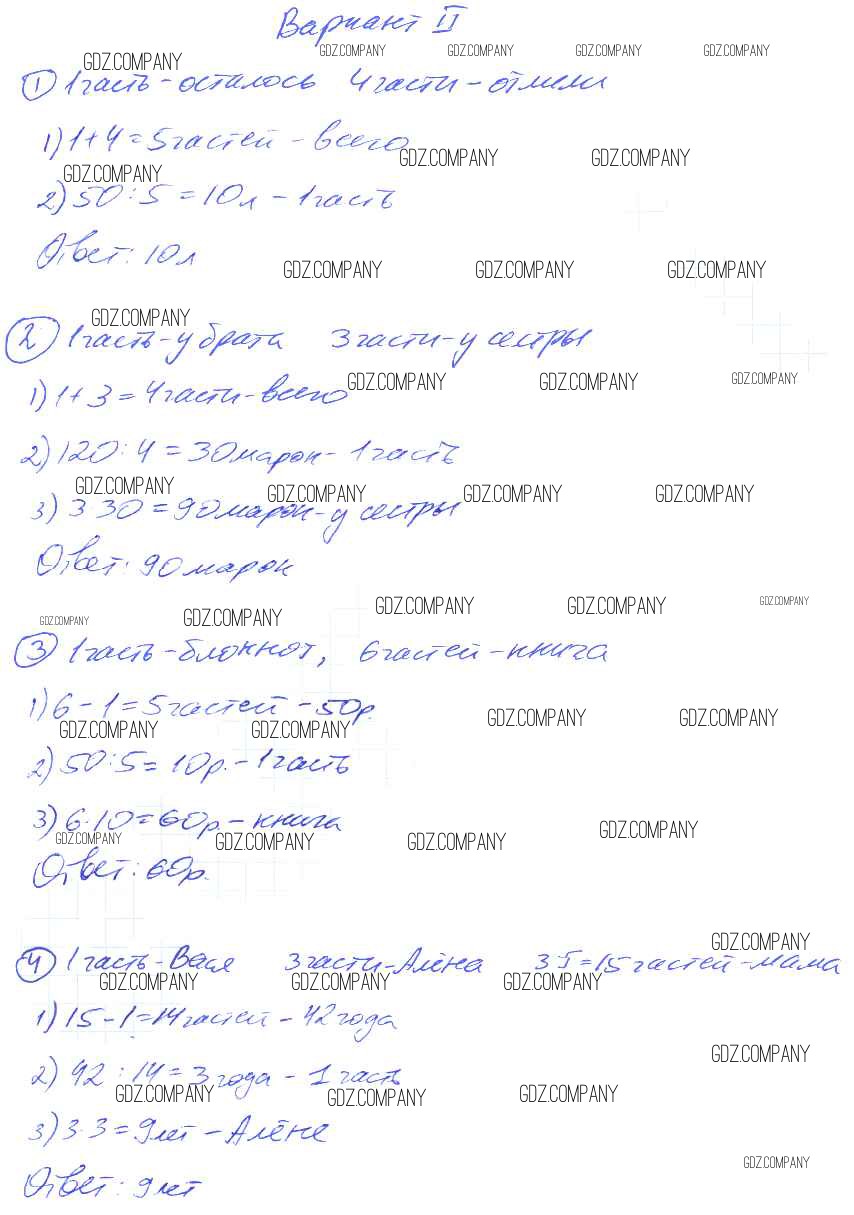 Вариант II
GDZ.COMPANY GDZ.COMPANY GDZ.COMPANY GDZ.COMPANY GDZ.COMPANY
1 1 часть - осталось 4 части - отлили
1) 1+4=5 частей - всего
GDZ.COMPANY GDZ.COMPANY GDZ.COMPANY
2) 50:5=10 л - 1 часть
Ответ: 10 л
GDZ.COMPANY GDZ.COMPANY GDZ.COMPANY
GDZ.COMPANY
2 1 часть - у брата 3 части - у сестры
GDZ.COMPANY GDZ.COMPANY GDZ.COMPANY
1) 1+3=4 части - всего
2) 120:4=30 марок - 1 часть
GDZ.COMPANY GDZ.COMPANY GDZ.COMPANY GDZ.COMPANY
3) 3·30=90 марок - у сестры
Ответ: 90 марок
GDZ.COMPANY GDZ.COMPANY GDZ.COMPANY GDZ.COMPANY GDZ.COMPANY
3 1 часть - блокнот, 6 частей - книга
1) 6-1=5 частей - 50р.
GDZ.COMPANY GDZ.COMPANY GDZ.COMPANY GDZ.COMPANY
2) 50:5=10р. - 1 часть
3) 6·10=60р. - книга
GDZ.COMPANY GDZ.COMPANY GDZ.COMPANY GDZ.COMPANY
Ответ: 60р.
GDZ.COMPANY
4 1 часть - Вася 3 части - Алёна 3·5=15 частей - мама
GDZ.COMPANY GDZ.COMPANY GDZ.COMPANY
1) 15-1=14 частей - 42 года
GDZ.COMPANY
2) 42:14=3 года - 1 часть
GDZ.COMPANY GDZ.COMPANY GDZ.COMPANY
3) 3·3=9 лет - Алёне
GDZ.COMPANY
Ответ: 9 лет